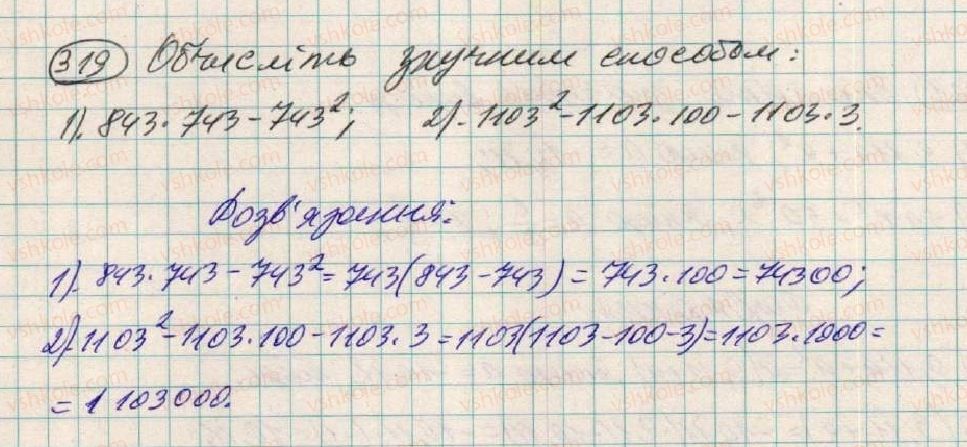 319 Обчисліть зручним способом:
1). 843·743-743²; 2). 1103²-1103·100-1103·3.
Розв'язання:
1). 843·743-743²=743(843-743)=743·100=74300;
2).1103²-1103·100-1103·3=1103(1103-100-3)=1103·1000=
=1103000.